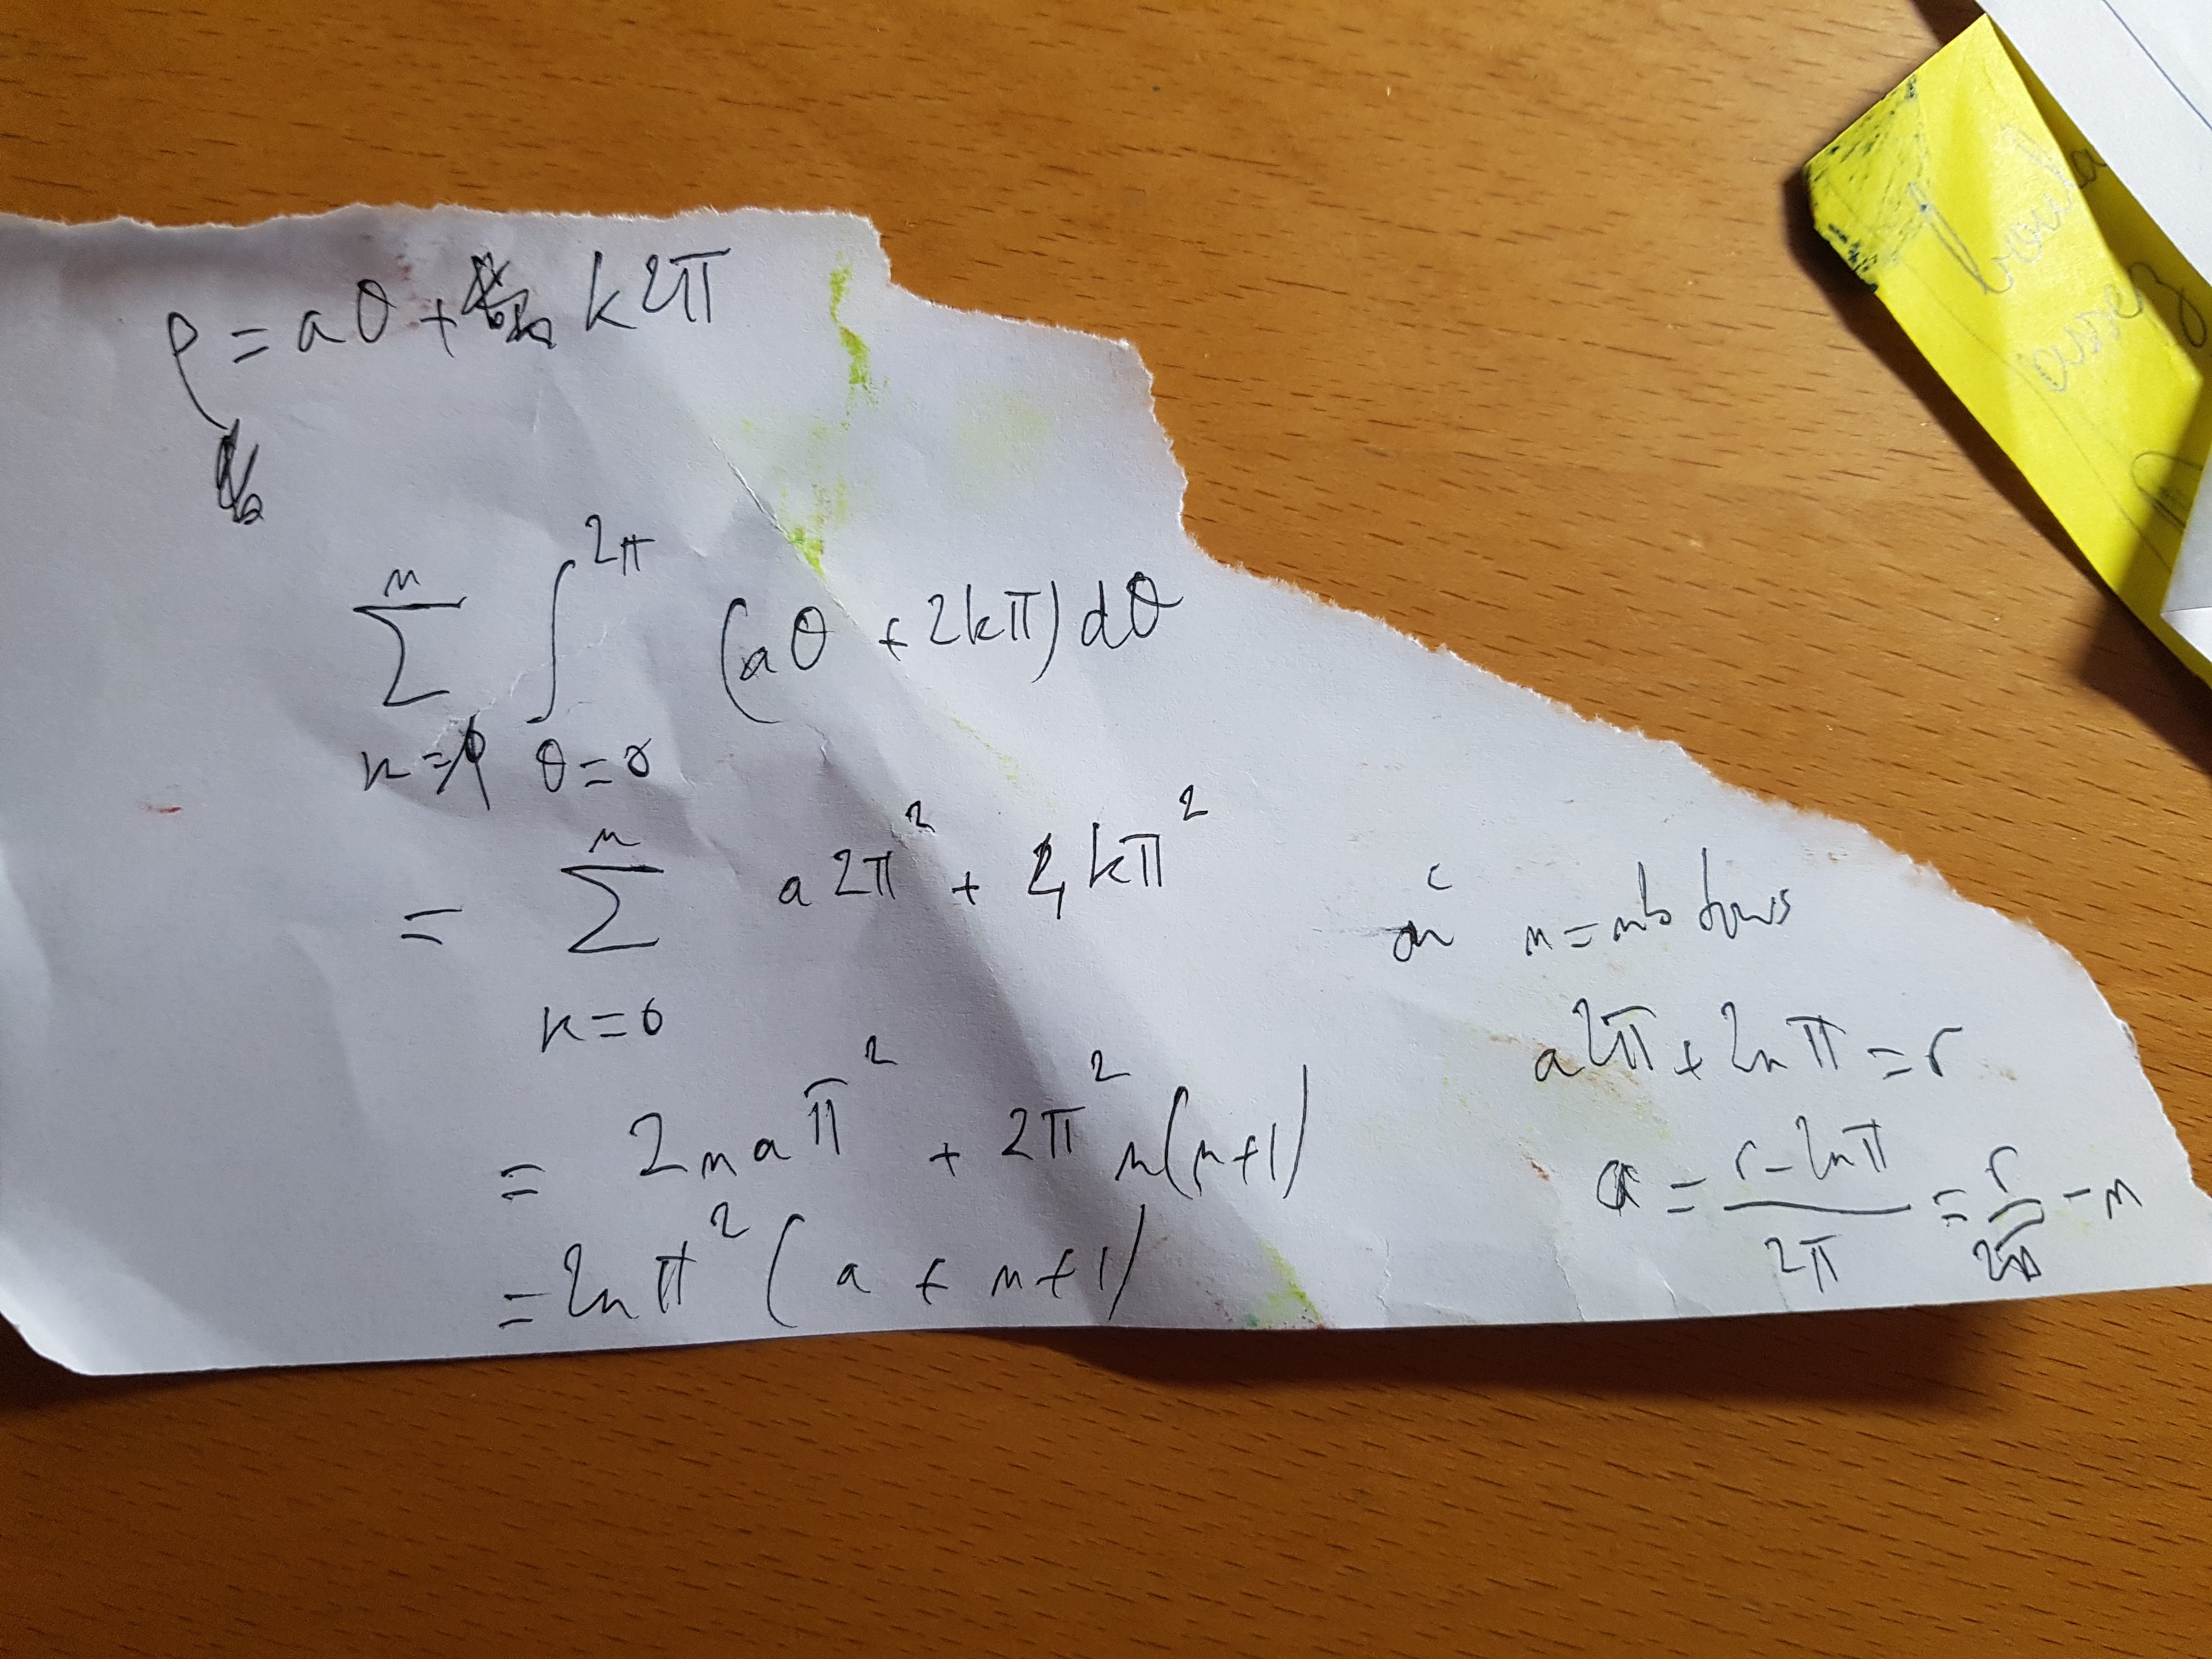 ρ = aθ + k2π
n 2π
∑ ∫ (aθ + 2kπ) dθ
k=0 θ=0
n
= ∑ a2π² + 4kπ²
k=0
= 2naπ² + 2π² n(n+1)
= 2nπ² (a + n+1)
où n = nb tours
a2π + 2nπ = r
a = (r - 2nπ)/2π = r/2π - n